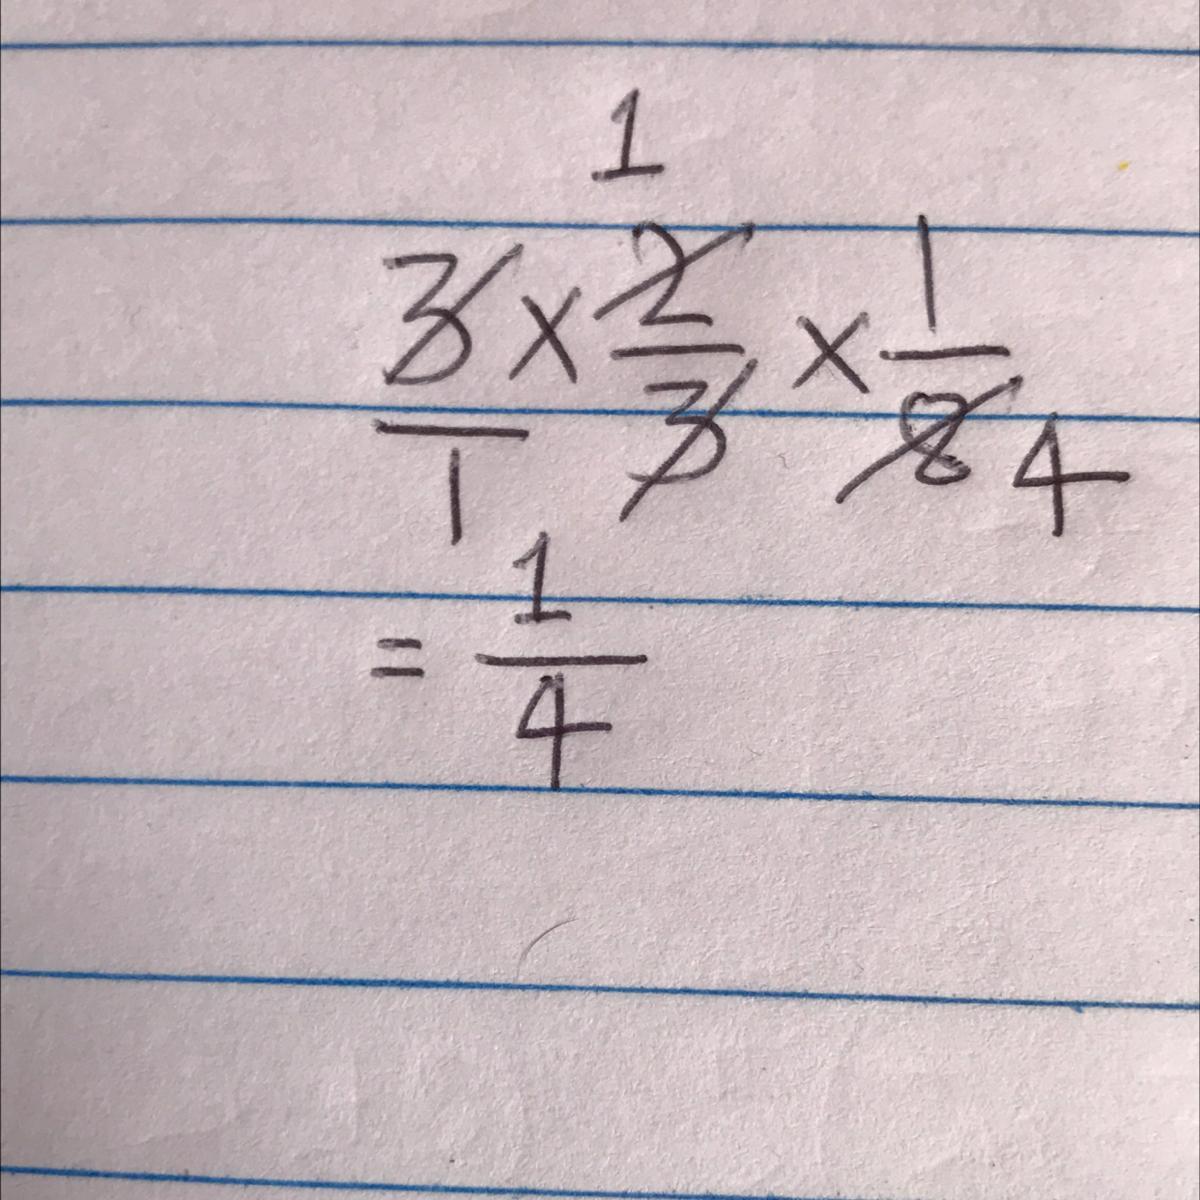 1
3/1 × 2/3 × 1/8 4
= 1/4